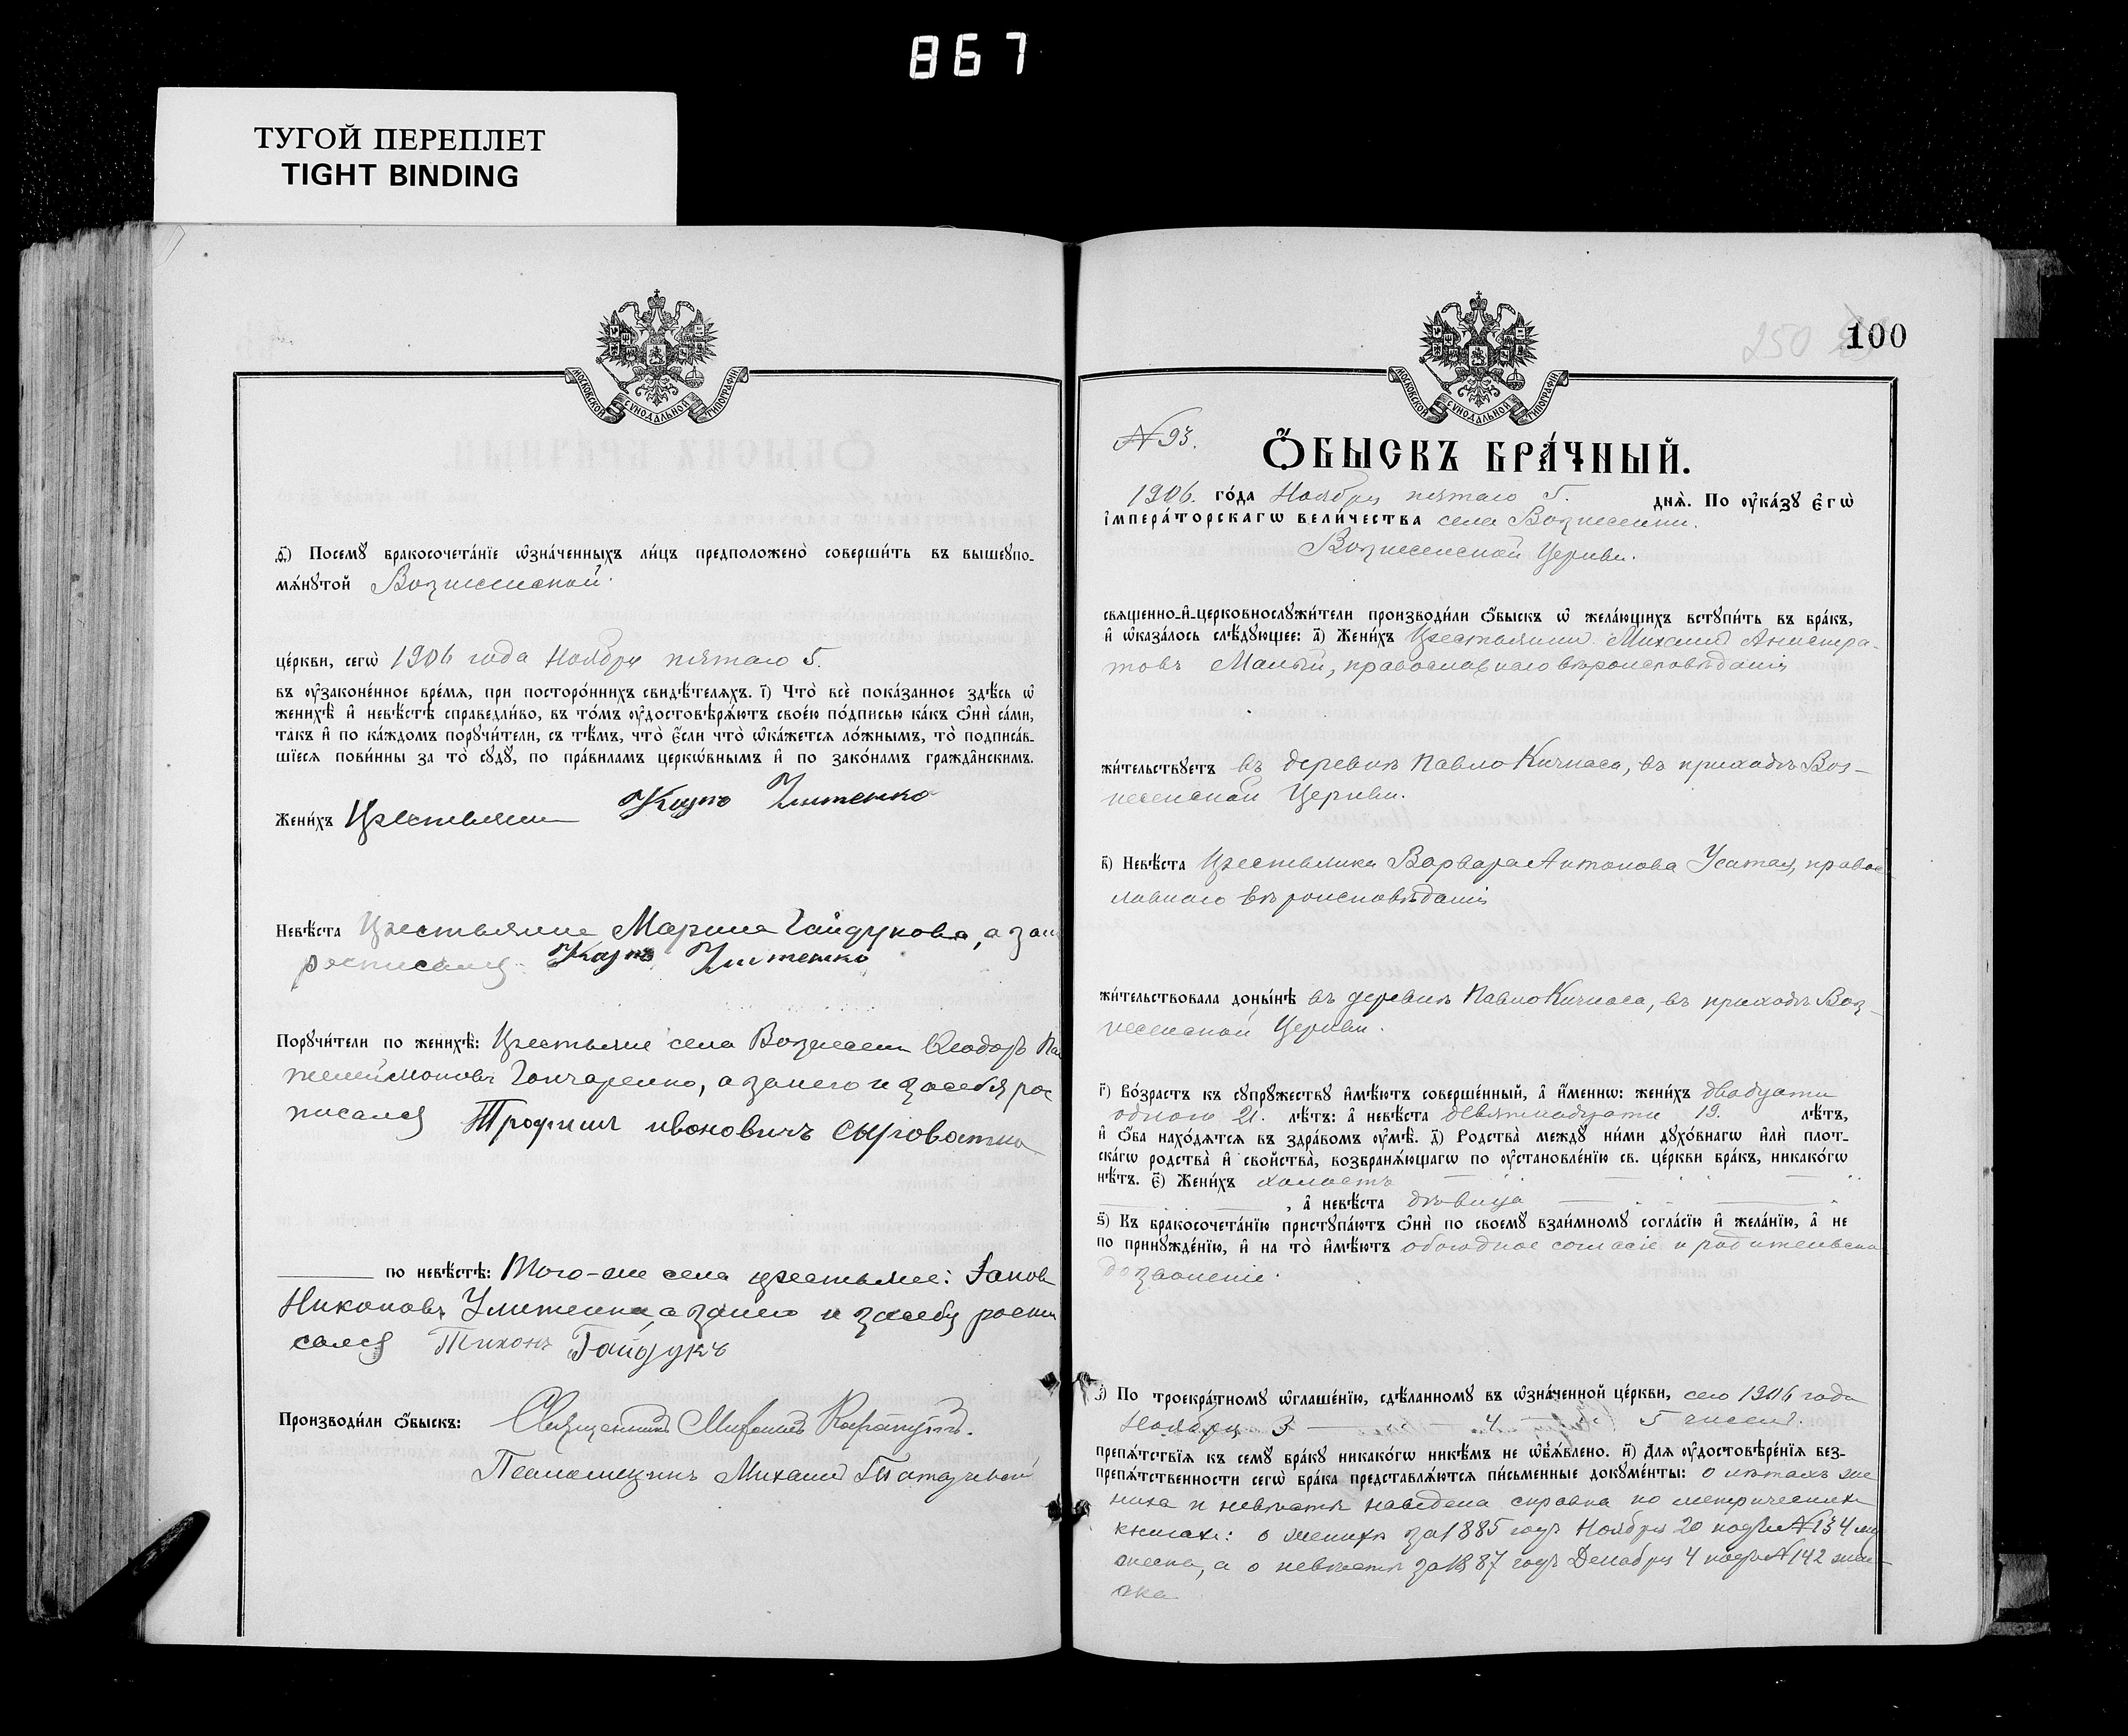 867
ТУГОЙ ПЕРЕПЛЕТ
TIGHT BINDING
МОСКОВСКОЙ СѴНОДАЛЬНОЙ ТИПОГРАФІИ
ѳ҃) Посемꙋ бракосочета́нїе ѡ҆зна́ченныхъ ли́цъ предположено̀ соверши́ть въ вышеꙋпо-
мѧ́нꙋтой Вознесенской
це́ркви, сегѡ̀ 1906 года Ноября пятаго 5.
въ ᲂу҆законе́нное вре́мѧ, при посторо́ннихъ свидѣ́телѧхъ. і҃) Что̀ всѐ пока́занное здѣ́сь ѡ҆
женихѣ̀ и҆ невѣ́стѣ справедли́во, въ то́мъ ᲂу҆достовѣрѧ́ютъ свое́ю по́дписью ка́къ ѻ҆нѝ са́ми,
та́къ и҆ по ка́ждомъ порꙋчи́тели, съ тѣ́мъ, что̀ є҆́сли что̀ ѡ҆ка́жетсѧ ло́жнымъ, то̀ подписа́в-
шїесѧ пови́нны за то̀ сꙋдꙋ̀, по пра́виламъ церкѡ́внымъ и҆ по зако́намъ гражда̂нскимъ.
Жени́хъ Крестьянин Карпъ Улитенко
Невѣ́ста Крестьянка Марина Гайдукова, а за
росписался Карпъ Улитенко
Порꙋчи́тели по женихѣ̀: Крестьяне села Вознесенки Ѳеодоръ Пан
телеймоновъ Гончаренко, а за него и за себя рос
писался Трофимъ ивоновичъ Сыроватка
по невѣ́стѣ: Того-же села крестьяне: Іаковъ
Никоновъ Улитенко, а за него и за себя роспи
сался Тихонъ Гайдукъ
Производи́ли ѻ҆́быскъ: Священникъ Митрофанъ
Псаломщикъ Михаилъ
МОСКОВСКОЙ СѴНОДАЛЬНОЙ ТИПОГРАФІИ
250 100
№ 93.
Ѻ҆́БЫСКЪ БРА́ЧНЫЙ.
1906. го́да Ноября пятаго 5. днѧ̀. По ᲂу҆ка́зꙋ є҆гѡ̀
і҆мпера́торскагѡ вели́чества села Вознесенки.
Вознесенской Церкви.
свѧще́нно-и҆-церковнослꙋжи́тели производи́ли ѻ҆́быскъ ѡ҆ жела́ющихъ встꙋпи́ть въ бра́къ,
и҆ ѡ҆каза́лось слѣ́дꙋющее: а҃) Жени́хъ Крестьянинъ Михаилъ Анистра-
товъ Малый, православнаго вѣроисповѣданія
жи́тельствꙋетъ въ деревнѣ Павло Кичкасѣ, въ приходѣ Воз-
несенской Церкви.
в҃) Невѣ́ста Крестьянка Варвара Антонова Усатая, правос
лавнаго вѣроисповѣданія
жи́тельствовала доны́нѣ въ деревнѣ Павло Кичкасѣ, въ приходѣ Воз-
несенской Церкви.
г҃) Во́зрастъ къ сꙋпрꙋ́жествꙋ и҆мѣ́ютъ соверше́нный, а҆ и҆́меннѡ: жени́хъ двадцати
одного 21. лѣ́тъ: а҆ невѣ́ста девятнадцати 19. лѣ́тъ,
и҆ ѻ҆́ба нахо́дѧтсѧ въ здра́вомъ ᲂу҆мѣ̀. д҃) Родства̀ междꙋ̀ ни́ми дꙋхо́внагѡ и҆лѝ плот-
ска́гѡ родства̀ и҆ сво́йства̀, возбранѧ́ющагѡ по ᲂу҆становле́нїю св. це́ркви бра́къ, никако́гѡ
нѣ́тъ. є҃) Жени́хъ холостъ
, а҆ невѣ́ста дѣвица
ѕ҃) Къ бракосочета́нїю пристꙋпа́ютъ ѻ҆нѝ по своемꙋ̀ взаи́мномꙋ согла́сїю и҆ жела́нїю, а҆ не
по принꙋжде́нїю, и҆ на то̀ и҆мѣ́ютъ обоюдное согласіе и родительское
дозволеніе.
з҃) По троекра́тномꙋ ѡ҆глаше́нїю, сдѣ́ланномꙋ въ ѡ҆зна́ченной це́ркви, сего 1906 года
Ноября 3 — 4 — 5 чиселъ.
препѧ́тствїѧ къ семꙋ̀ бра́кꙋ никако́гѡ никѣ́мъ не ѡ҆б̾ѧ́влено. и҃) Длѧ̀ ᲂу҆достовѣре́нїѧ без-
препѧ́тственности сегѡ̀ бра́ка представлѧ́ютсѧ пи́сьменные докꙋме́нты: о лѣтахъ же
ниха и невѣсты наведена справка по метрическимъ
книгамъ: о женихѣ за 1885 годъ Ноября 20 подъ №134 му
жеска, а о невѣстѣ за 1887 годъ Декабря 4 подъ №142 жен-
ска